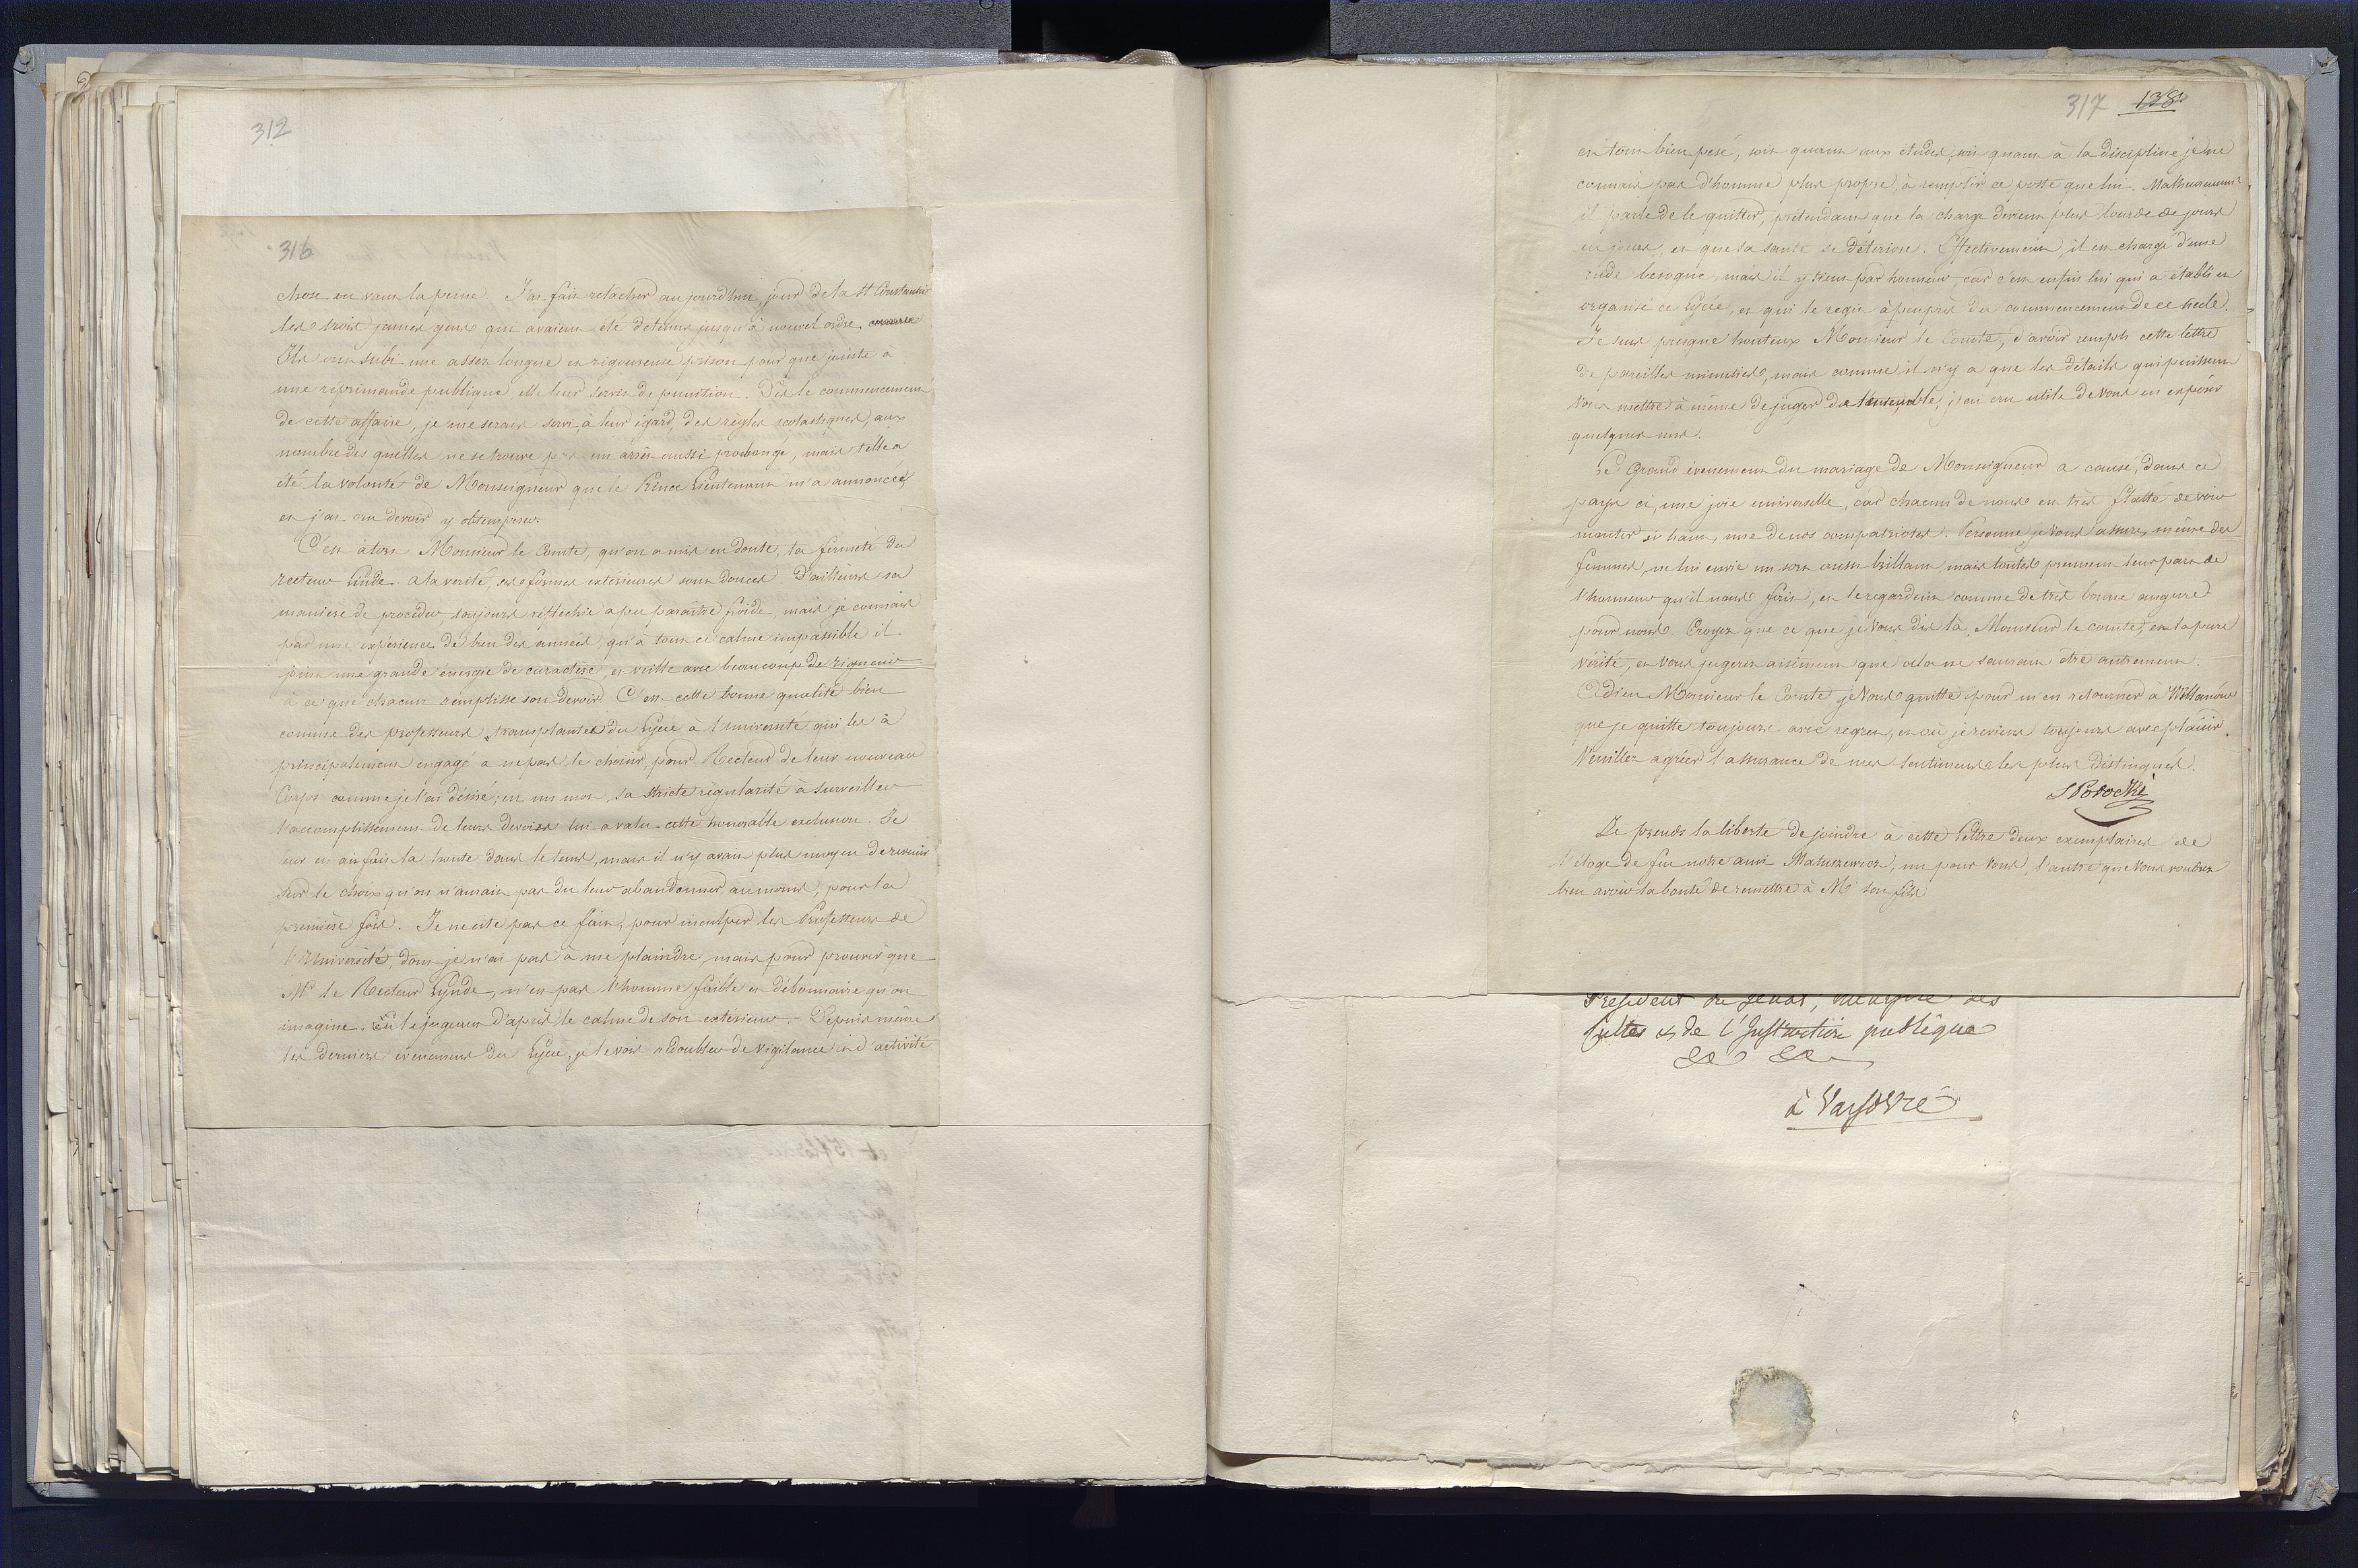 312
316
chose en vaut la peine. J'ai fait relacher aujourdhui, jour de la St Constantin
les trois jeunes gens qui avaient été detenus jusqu'à nouvel ordre,
Ils ont subi une assez longue et rigoureuse prison pour que jointe à
une reprimande publique, elle leur servit de punition. Dès le commencement
de cette affaire, je me serais servi, à leur égard, des règles scolastiques, aux
nombre des quelles ne se trouve pas un arrêt aussi prolongé, mais telle a
été la volonté de Monseigneur que le Prince Lieutenant m'a annoncée,
et j'ai cru devoir y obtemperer.
C'est à tort Monsieur le Comte, qu'on a mis en doute, la fermeté du
recteur Linde. a la verité, ses formes extérieures sont douces. D'ailleurs sa
maniere de proceder, toujours réflechie a pu paraitre froide, mais je connais
par une expérience de bien des années, qu'à tout ce calme impassible il
joint une grande énergie de caractère, et veille avec beaucoup de rigueur
à ce que chacun remplisse son devoir. C'est cette bonne qualité bien
connue des professeurs transplantés du Lycée à l'Université qui les à
principalement engagé a ne pas le choisir, pour Recteur de leur nouveau
Corps comme je l'ai désiré; en un mot, sa stricte régularité à surveiller
l'accomplissement de leurs devoirs lui a valu cette honorable exclusion. Je
leur en ai fait la honte dans le tems, mais il n'y avait plus moyen de revenir
sur le choix qu'on n'aurait pas du leur abandonner au moins, pour la
première fois. Je ne cite pas ce fait, pour inculper les Professeurs de
l'Université, dont je n'ai pas à me plaindre, mais pour prouver que
Mr le Recteur Lynde, n'est pas l'homme faible et débonnaire qu'on
imagine. En le jugeant d'après le calme de son extérieur. Depuis même
les derniers évenemens du Lycée, je le vois redoubler de vigilance et d'activité
317 138
et tout bien pesé, soit quant aux études, soit quant à la discipline je ne
connais pas d'homme plus propre, à remplir ce poste que lui. Malheureusemt
il parle de le quitter, prétendant que la charge devient plus lourde de jours
en jours, et que sa santé se détériore. Effectivement, il est chargé d'une
rude besogne, mais il y tient par honneur, car c'est enfin lui qui a établi et
organisé ce Lycée, et qui le regit àpeuprès du commencement de ce siecle.
Je suis presque honteux Monsieur le Comte, d'avoir rempli cette lettre
de pareilles minuties, mais comme il n'y a que les détails qui puissent
vous mettre à même de juger de l'ensemble, j'ai cru utile de vous en exposer
quelques uns.
Le Grand évenement du mariage de Monseigneur a causé, dans ce
pays ci, une joie universelle, car chacun de nous est très flatté de voir
monter si haut, une de nos compatriotes. Personne, je vous assure, même des
femmes, ne lui envie un sort aussi brillant, mais toutes prennent leur part de
l'honneur qu'il nous fait, et le regardent comme de très bonne augure
pour nous. Croyez que ce que je vous dis là, Monsieur le comte, est la pure
vérité, et vous jugerez aisément que cela ne saurait être autrement.
Adieu Monsieur le Comte, je vous quitte pour m'en retourner à Willanów
que je quitte toujours avec regret, et où je reviens toujours avec plaisir.
Veuillez agréer l'assurance de mes sentimens les plus distingués.
S Potocki
Je prends la liberté de joindre à cette lettre deux exemplaires de
l'éloge de feu notre ami Matuszewicz, un pour vous, l'autre que vous voudrez
bien avoir la bonté de remettre à Mr son fils
President du Senat, Ministre des
Cultes & de l'Instruction publique
&c &c
à Varsovie